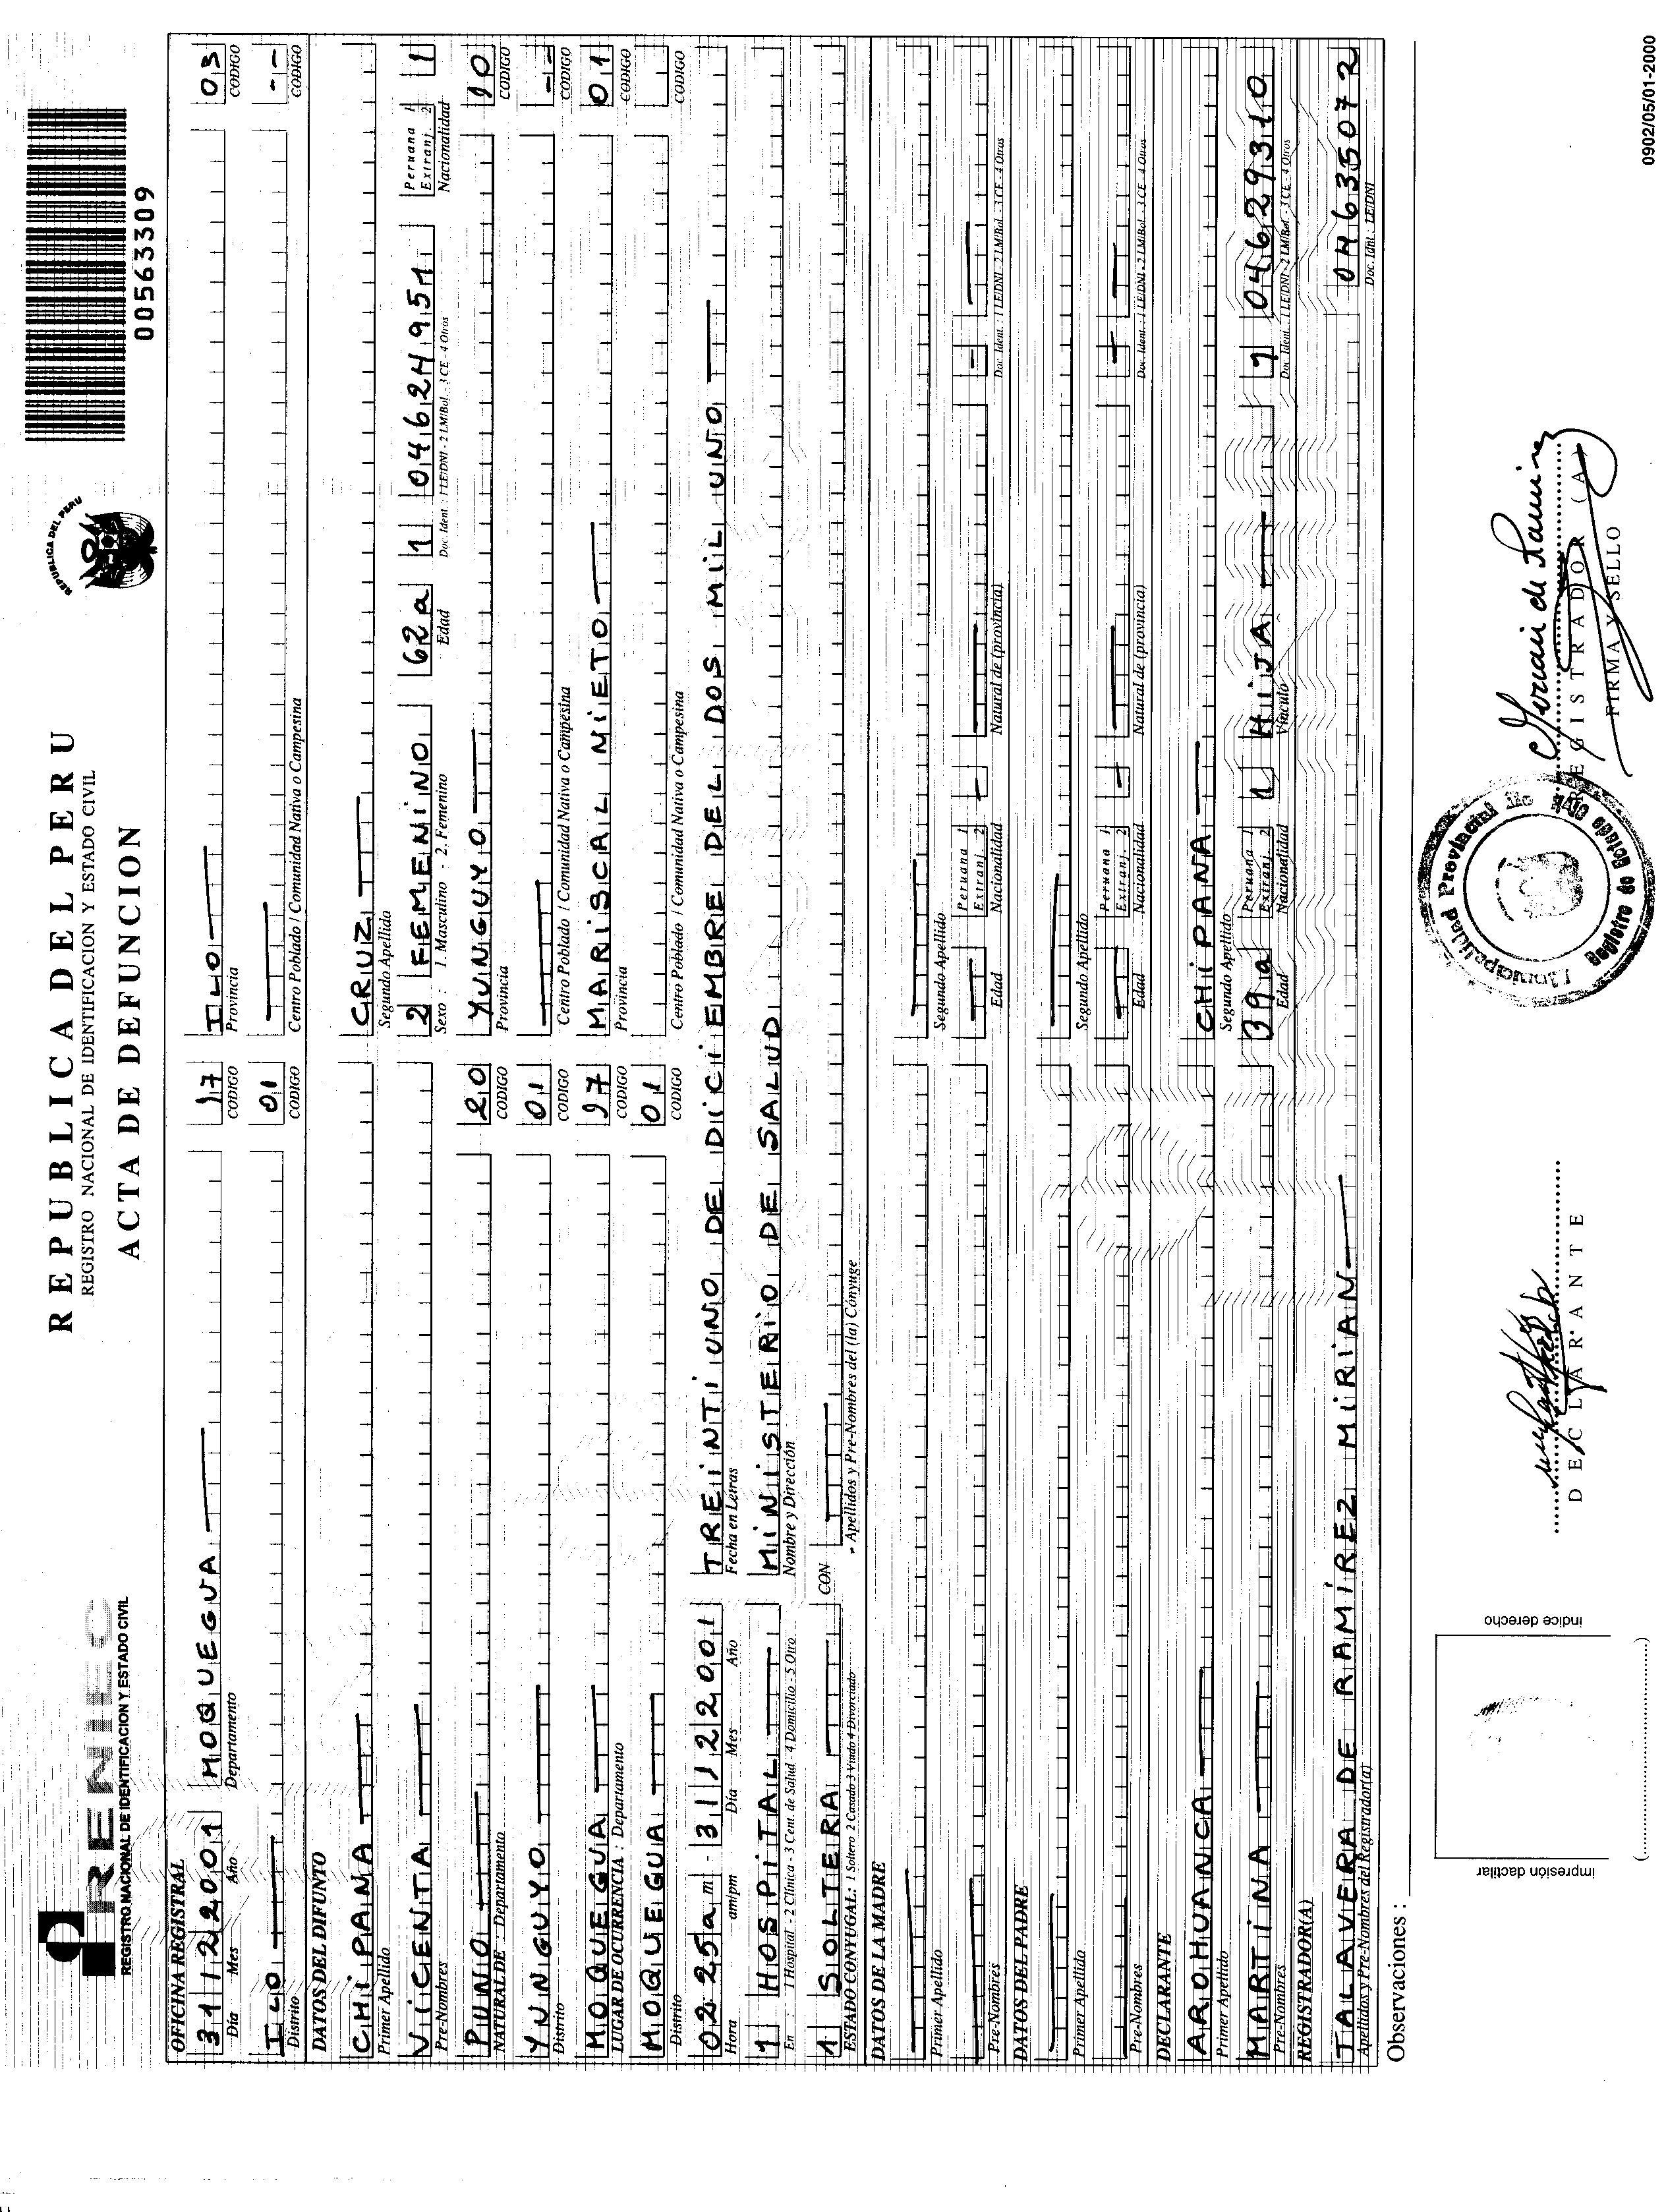 RENIEC
REGISTRO NACIONAL DE IDENTIFICACION Y ESTADO CIVIL
REPUBLICA DEL PERU
REGISTRO NACIONAL DE IDENTIFICACION Y ESTADO CIVIL
ACTA DE DEFUNCION
REPUBLICA DEL PERU
00563309
OFICINA REGISTRAL
31 12 2001 MOQUEGUA 17 ILO 03
Día Mes Año Departamento CODIGO Provincia CODIGO
ILO 01 --
Distrito CODIGO Centro Poblado / Comunidad Nativa o Campesina CODIGO
DATOS DEL DIFUNTO
CHiPANA CRUZ
Primer Apellido Segundo Apellido
ViCENTA 2 FEMENiNO 62a 1 04624951 Peruana 1 Extranj. 2 1
Pre-Nombres Sexo : 1. Masculino - 2. Femenino Edad Doc. Ident. : 1 LE/DNI - 2 LM/Bol. - 3 CE - 4 Otros Nacionalidad
PUNO 20 YUNGUYO 10
NATURAL DE : Departamento CODIGO Provincia CODIGO
YUNGUYO 01 --
Distrito CODIGO Centro Poblado / Comunidad Nativa o Campesina CODIGO
MOQUEGUA 17 MARiSCAL NiETO 01
LUGAR DE OCURRENCIA : Departamento CODIGO Provincia CODIGO
MOQUEGUA 01
Distrito CODIGO Centro Poblado / Comunidad Nativa o Campesina CODIGO
02:25am - 31 12 2001 TREiNTiUNO DE DiCiEMBRE DEL DOS MiL UNO
Hora am/pm Día Mes Año Fecha en Letras
1 HOSPiTAL MiNiSTERiO DE SALUD
En : 1 Hospital - 2 Clínica - 3 Cent. de Salud - 4 Domicilio - 5 Otro Nombre y Dirección
1 SOLTERA CON
ESTADO CONYUGAL : 1 Soltero 2 Casado 3 Viudo 4 Divorciado Apellidos y Pre-Nombres del (la) Cónyuge
DATOS DE LA MADRE
Primer Apellido Segundo Apellido
Peruana 1 Extranj. 2
Pre-Nombres Edad Nacionalidad Natural de (provincia) Doc. Ident. : 1 LE/DNI - 2 LM/Bol. - 3 CE - 4 Otros
DATOS DEL PADRE
Primer Apellido Segundo Apellido
Peruana 1 Extranj. 2
Pre-Nombres Edad Nacionalidad Natural de (provincia) Doc. Ident. : 1 LE/DNI - 2 LM/Bol. - 3 CE - 4 Otros
DECLARANTE
AROHUANCA CHiPANA
Primer Apellido Segundo Apellido
MARTiNA 39a Peruana 1 Extranj. 2 1 HiJA 1 04629310
Pre-Nombres Edad Nacionalidad Vínculo Doc. Ident. : 1 LE/DNI - 2 LM/Bol. - 3 CE - 4 Otros
REGISTRADOR(A)
TALAVERA DE RAMÍREZ MiRiAN 04635072
Apellidos y Pre-Nombres del Registrador(a) Doc. Idnt : LE/DNI
Observaciones :
impresión dactilar
indice derecho
DECLARANTE
Municipalidad Provincial de Ilo
Registro de Estado Civil
REGISTRADOR (A)
FIRMA Y SELLO
0902/05/01-2000